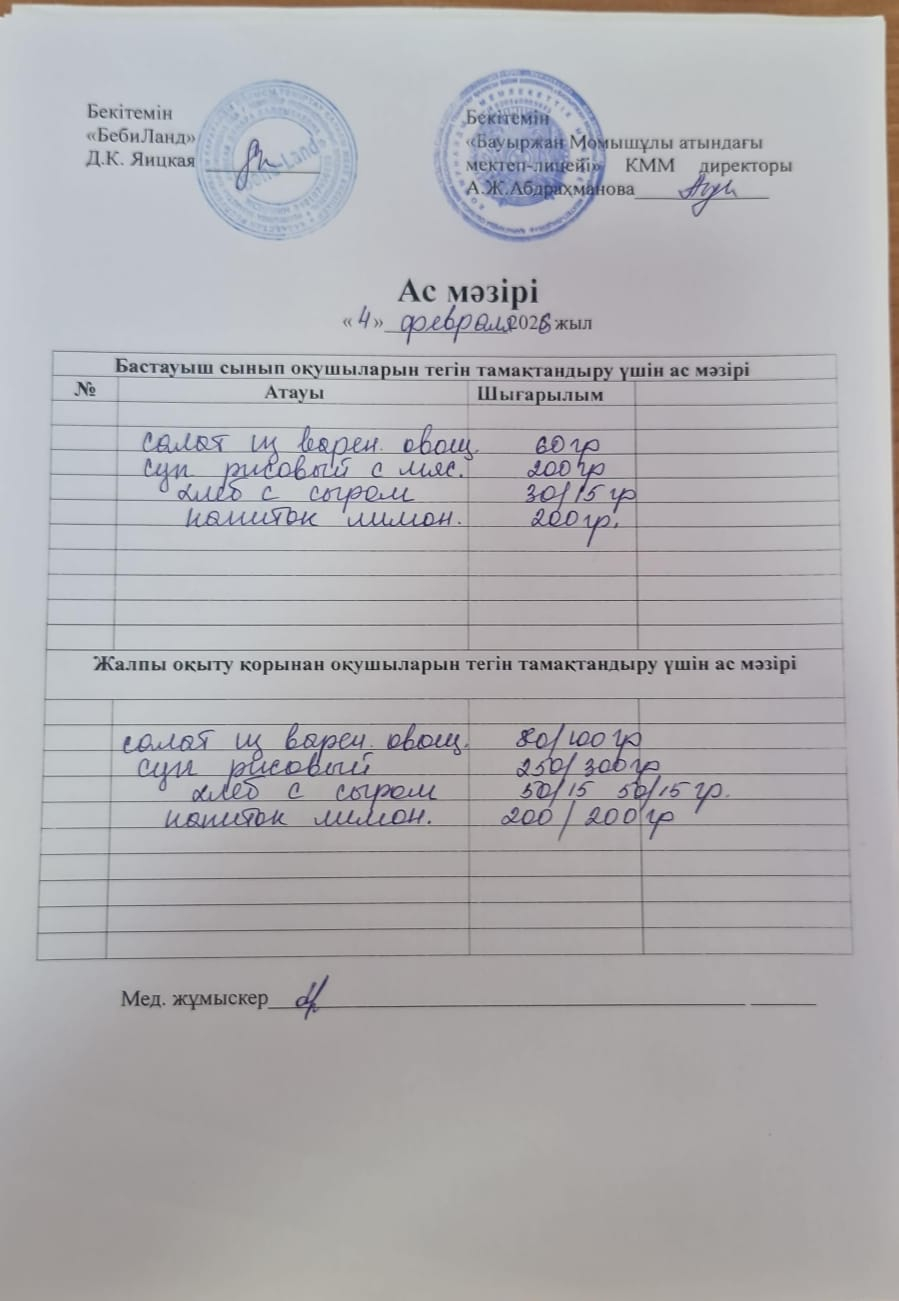 Бекітемін
«БебиЛанд»
Д.К. Яицкая
Бекітемін
«Бауыржан Момышұлы атындағы
мектеп-лицейі» КММ директоры
А.Ж.Абдрахманова
Ас мәзірі
«4» февраля 2026 жыл
Бастауыш сынып оқушыларын тегін тамақтандыру үшін ас мәзірі
№ Атауы Шығарылым
салат из варен. овощ. 60 гр
суп рисовый с мяс. 200 гр
хлеб с сыром 30/15 гр
напиток лимон. 200 гр.
Жалпы оқыту қорынан оқушыларын тегін тамақтандыру үшін ас мәзірі
салат из варен. овощ. 80/100 гр
суп рисовый 250/300 гр
хлеб с сыром 50/15 50/15 гр.
напиток лимон. 200/200 гр
Мед. жұмыскер